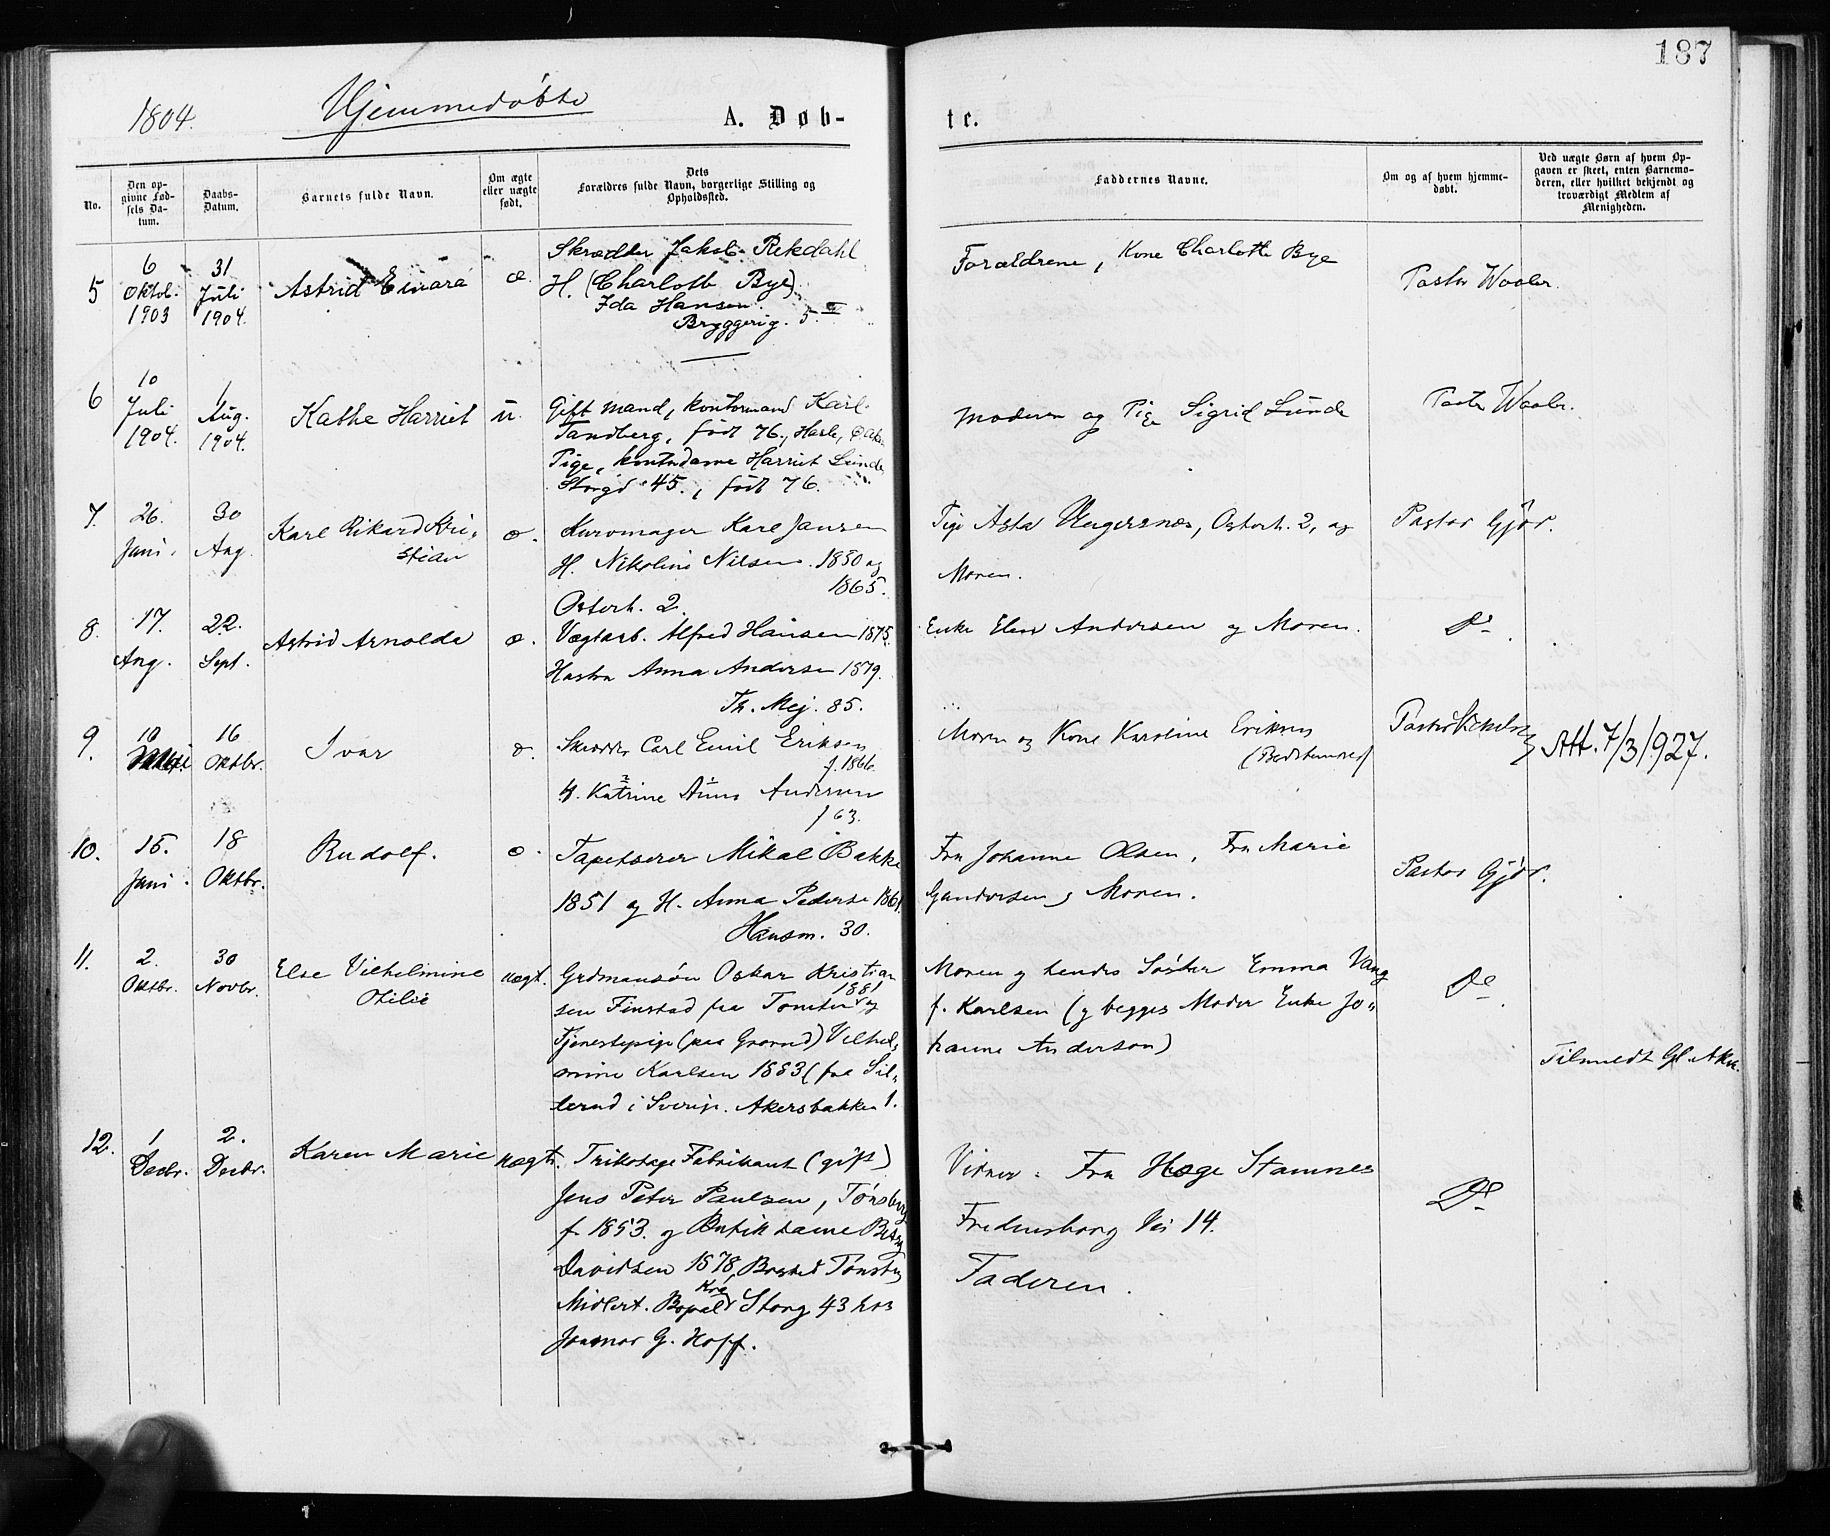 187
1804. Hjemmedøbte A. Døb-
te.
No.
Den op-
givne Fød-
sels Da-
tum.
Daabs-
Datum.
Barnets fulde Navn.
Om ægte
eller uægte
født.
Dets
Forældres fulde Navn, borgerlige Stilling og
Opholdssted.
Faddernes Navne.
Om og af hvem hjemme-
døbt.
Ved uægte Børn af hvem Op-
gaven er skeet, enten Barnemo-
deren, eller hvilket bekjendt og
troværdigt Medlem af
Menigheden.
5
6
Oktob.
1903
31
Juli
1904.
Astrid Einara
æ
Skrædder Jakob Rekdahl
H. (Charlotte Bye)
Ida Hansen.
Bryggerig. 5 II
Forældrene, Kone Charlotte Bye
Pastor Waaler.
6
10
Juli
1904.
1
Aug.
1904.
Kathe Harriet
u.
Gift mand, kontormand Karl
Tandberg, født 76., Hasle,
Pige, kontordame Harriet Lunde
Storgd 45., født 76.
Moderen og Pige Sigrid Lunde
Pastor Waaler.
7.
26.
Juni.
30
Aug.
Karl Rikard Kri-
stian
æ.
Kurvmager Karl Jansen
H. Nikoline Nilsen. 1850 og
1865.
Osterh. 2.
Pige Asta Ungersnæs, Osterh. 2, og
Moren.
Pastor Gjør.
8.
17.
Aug.
22.
Sept.
Astrid Arnolda
æ.
Vægtarb. Alfred Hansen 1875.
Hustru Anna Andersen 1879.
Th. Mej. 85.
Enke Elen Andersen og Moren.
Do
9.
10
Mai
16
Oktbr.
Ivar
æ
Skrædder Carl Emil Eriksen
f. 1866.
H. Katrine Anna Andersen
f 63.
Moren og Kone Karoline Eriksen
(Bedstemoder)
Pastor
Att. 7/3 1927.
10.
15.
Juni.
18
Oktbr.
Rudolf.
æ.
Tapetserer Mikal Bakke
1851 og H. Anna Pederse 1861.
Hausm. 30.
Fru Johanne Olsen, Fru Marie
Gundersen og Moren.
Pastor Gjør.
11.
2.
Oktbr.
30
Novbr.
Else Vilhelmine
Otilie
uægt.
Grdmansøn Oskar Kristian
1881
sen Finstad fra Tomter og
Tjenestepige (paa Grorud) Vilhel-
mine Karlsen 1883 (fra Sil-
lerud i Sverige. Akersbakken 1.
Moren og hendes Søster Emma Vang
f. Karlsen (og begges Moder Enke Jo-
hanne Anderson)
Do
Tilmeldt Gl. Aker.
12.
1
Decbr.
2.
Decbr.
Karen Marie
uægt.
Trikotage Fabrikant (gift)
Jens Peter Paulsen, Tønsberg
f. 1853. og Butikdame
Davidsen 1878, Bosted Tønsberg
Kra
Midlert. Bopæl Storg 43 hos
Jordmor G. Hoff.
Vidner. Fru Hege Stamnes
Fredensborg Vei 14.
Faderen.
Do